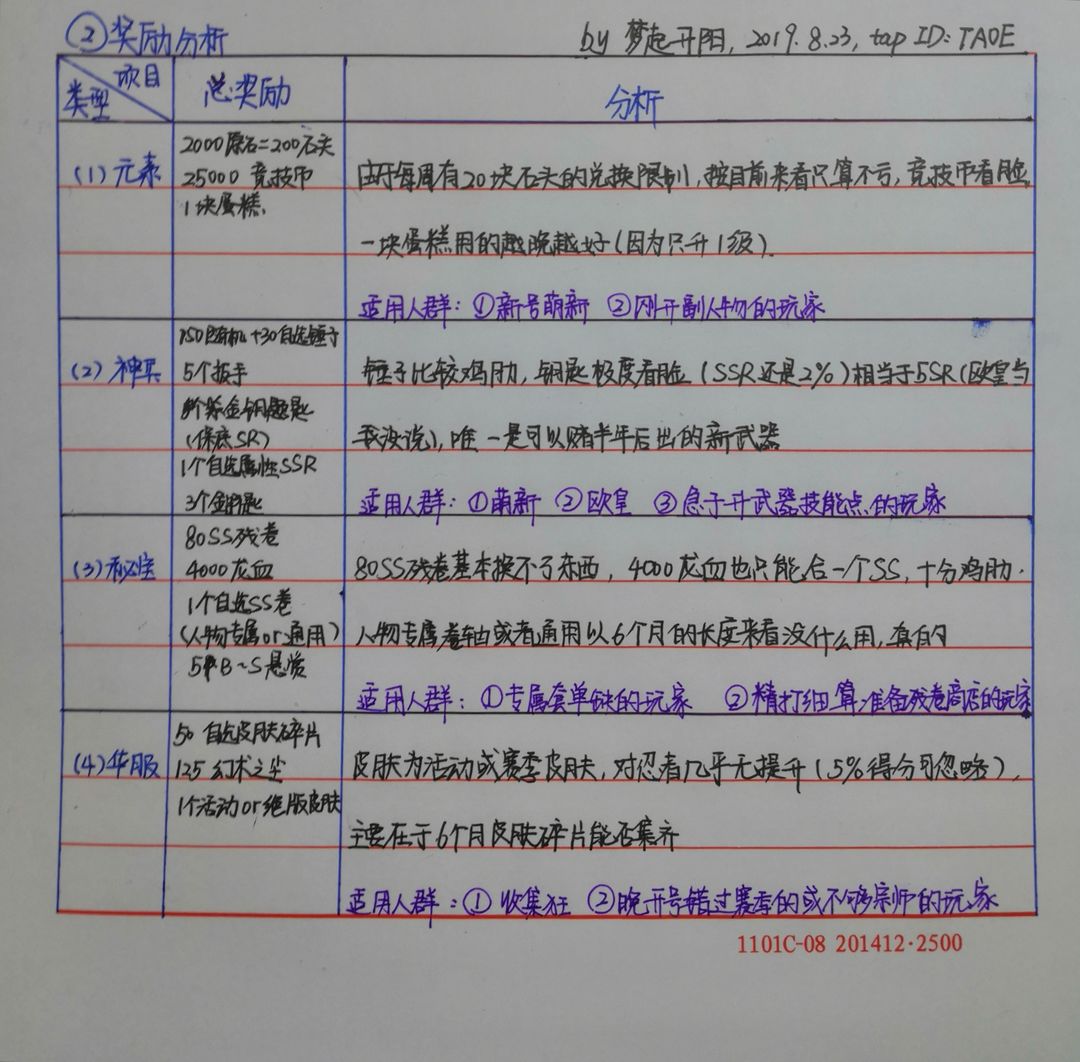 ②奖励分析
by 梦起开阳, 2019.8.23, tap ID: TAOE
项目
类型
总奖励
分析
(1)元素
2000原石=200石头
25000 竞技币
1块蛋糕.
由于每周有20块石头的兑换限制,按目前来看只算不亏,竞技币看脸,
一块蛋糕用的越晚越好(因为只升1级).
适用人群: ①新号萌新 ②刚开副人物的玩家
(2)神兵
150随机+30自选锤子
5个扳手
紫金钥匙
(保底SR)
1个自选属性SSR
3个金钥匙
锤子比较鸡肋,钥匙极度看脸(SSR还是2%)相当于5SR(欧皇当
我没说),唯一是可以赌半年后出的新武器
适用人群: ①萌新 ②欧皇 ③急于升武器技能点的玩家
(3)秘宝
80SS残卷
4000龙血
1个自选SS卷
(人物专属or通用)
5个B~S悬赏
80SS残卷基本换不了东西, 4000龙血也只能合一个SS, 十分鸡肋.
人物专属卷轴或者通用以6个月的长度来看没什么用,真的
适用人群: ①专属套单缺的玩家 ②精打细算准备残卷商店的玩家
(4)华服
50 自选皮肤碎片
125 幻术之尘
1个活动or绝版皮肤
皮肤为活动或赛季皮肤,对忍者几乎无提升(5%得分可忽略),
主要在于6个月皮肤碎片能否集齐
适用人群: ① 收集狂 ②晚开号错过赛季的或不够宗师的玩家
1101C-08 201412·2500